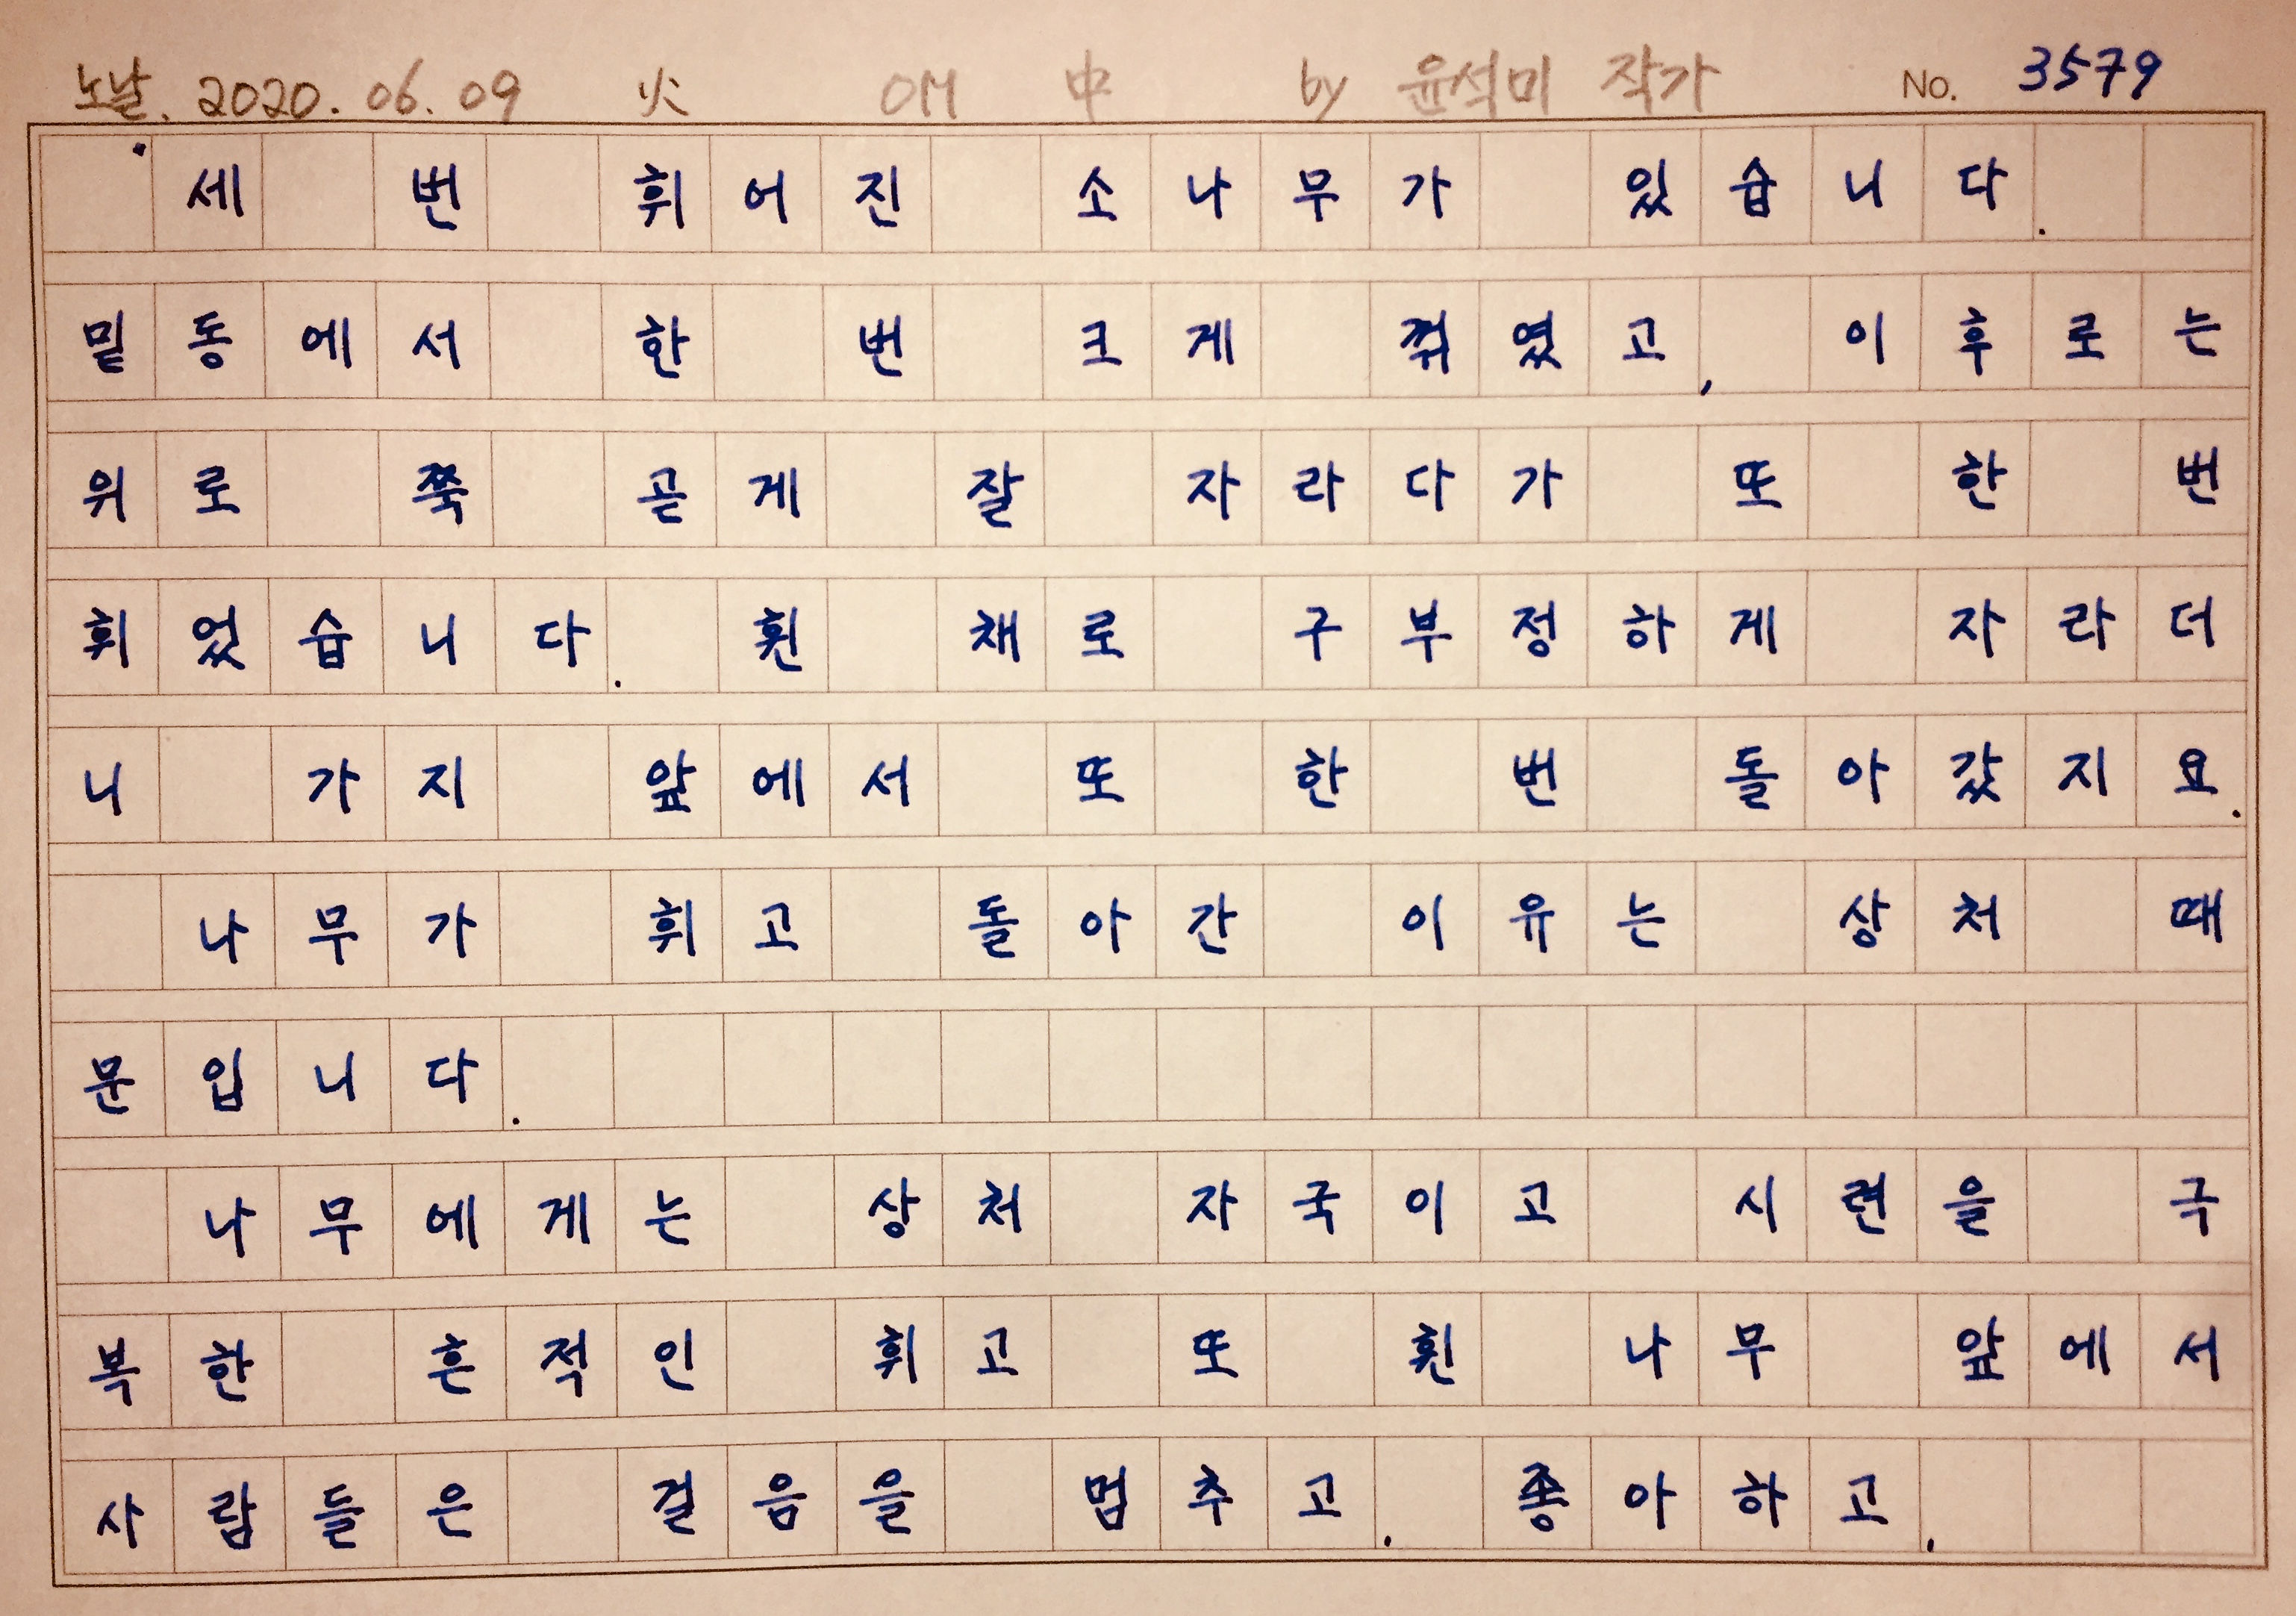 노날. 2020. 06. 09 火 OM 中 by 윤석미 작가 No. 3579
세 번 휘어진 소나무가 있습니다.
밑동에서 한 번 크게 꺾였고, 이후로는
위로 쭉 곧게 잘 자라다가 또 한 번
휘었습니다. 휜 채로 구부정하게 자라더
니 가지 앞에서 또 한 번 돌아갔지요.
나무가 휘고 돌아간 이유는 상처 때
문입니다.
나무에게는 상처 자국이고 시련을 극
복한 흔적인 휘고 또 휜 나무 앞에서
사람들은 걸음을 멈추고. 좋아하고.